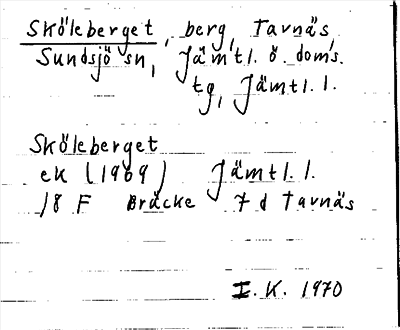 Sköleberget, berg, Tavnäs,
Sundsjö sn, Jämtl. ö. doms.
tg, Jämtl. l.
Sköleberget
ek (1969) Jämtl. l.
18 F Bräcke 7 d Tavnäs
I. K. 1970